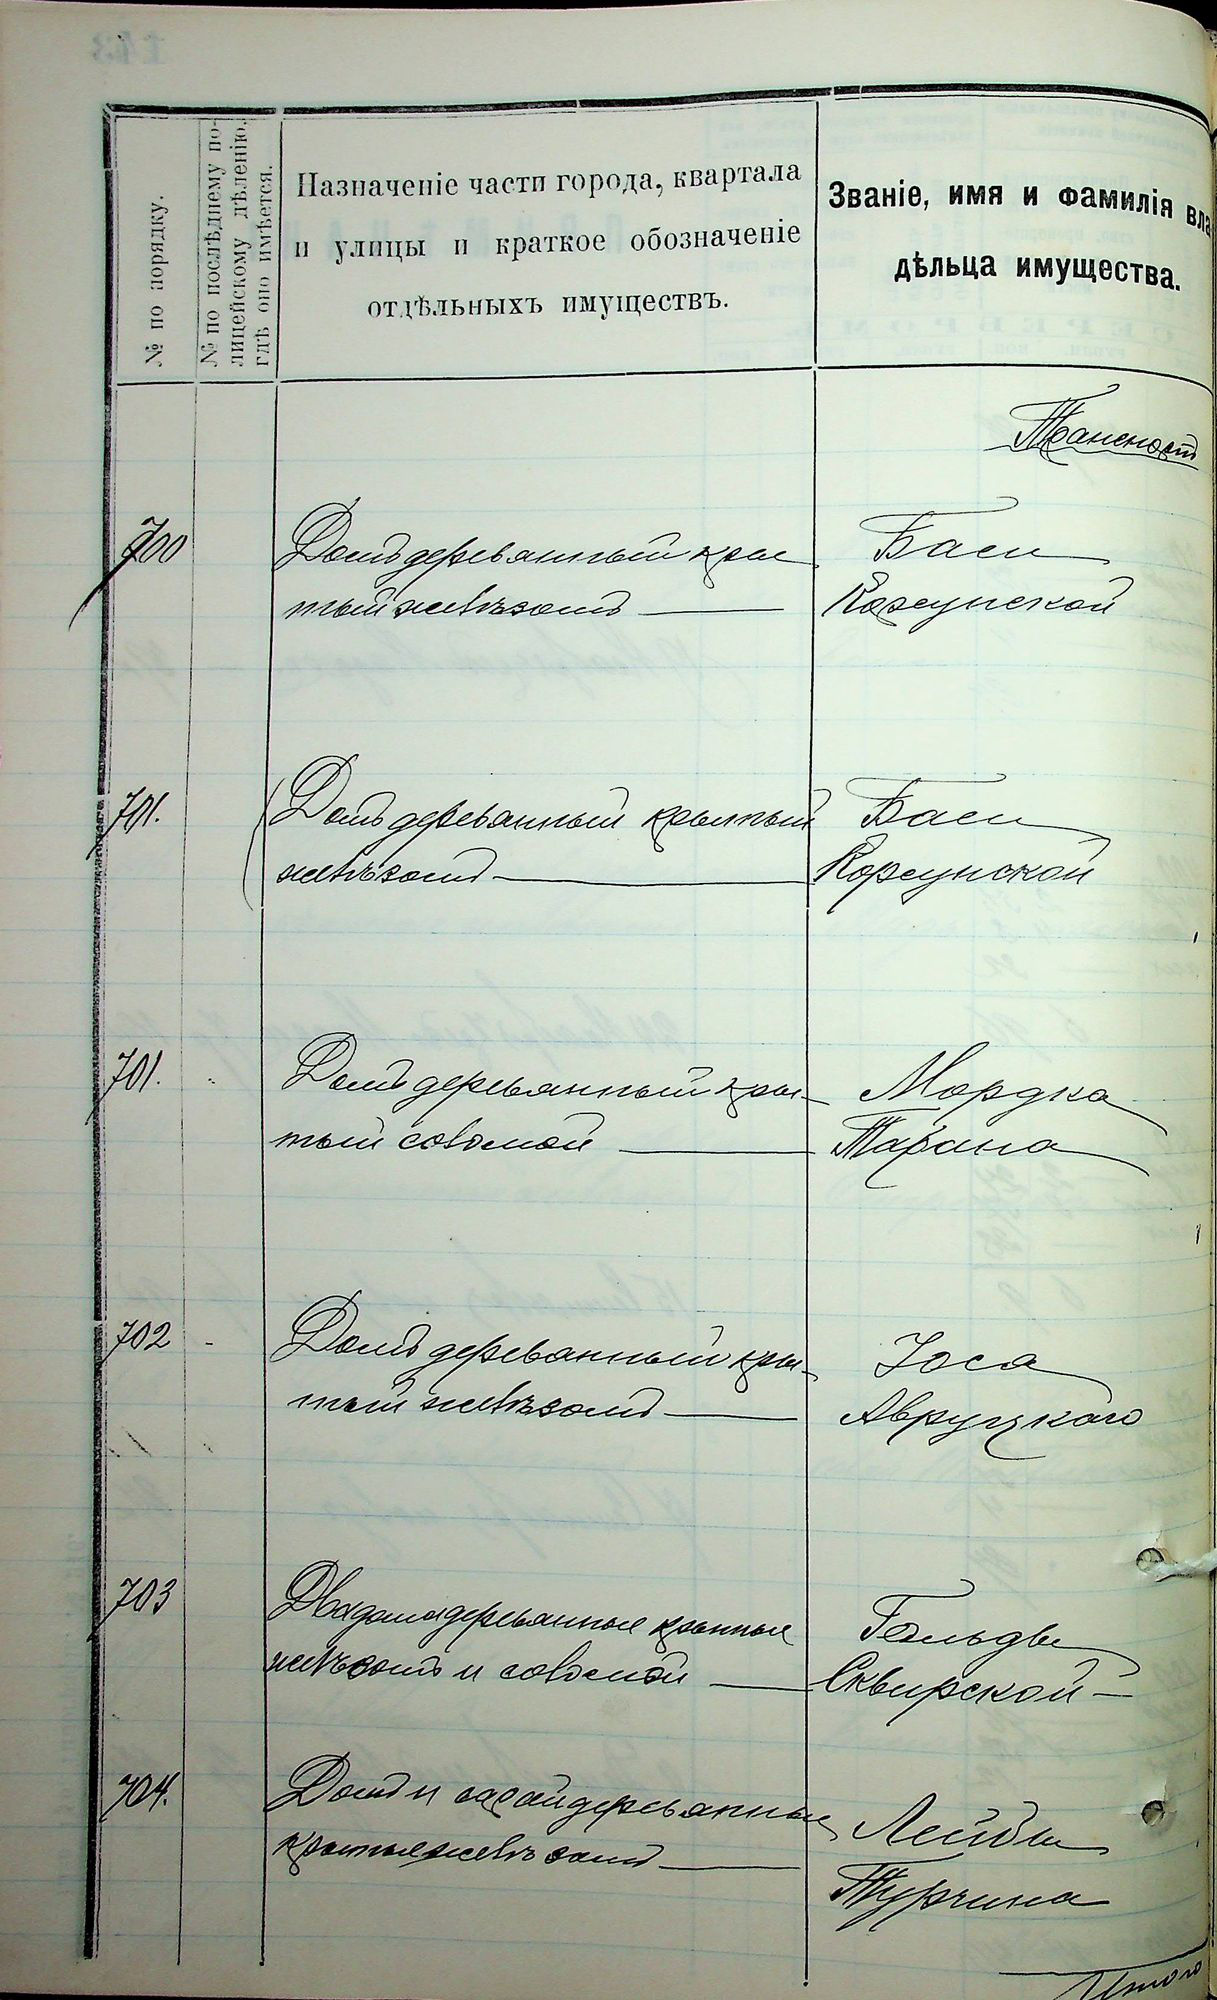 № по порядку.
№ по послѣднему по-
лицейскому дѣленію,
гдѣ оно имѣется.
Назначеніе части города, квартала
и улицы и краткое обозначеніе
отдѣльныхъ имуществъ.
Званіе, имя и фамилія вла
дѣльца имущества.
Транспортъ
700
Домъ деревянный кры
тый желѣзомъ
Баси
Корсунской
701.
Домъ деревянный крытый
желѣзомъ
Баси
Корсунской
701.
Домъ деревянный кры-
тый соломой
Мордка
Тарана
702
Домъ деревянный кры-
тый желѣзомъ
Іося
Авруцкаго
703
Два дома деревянные крытые
желѣзомъ и соломой
Гольды
Сквирской
704.
Домъ и сарай деревянные
крытые желѣзомъ
Лейбы
Турчина
Итого